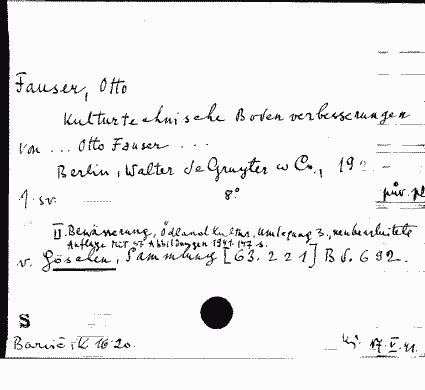 Fauser, Otto
Kulturtechnische Bodenverbesserungen
von ... Otto Fauser ...
Berlin, Walter de Gruyter & Co., 19
1 sv. 8°
pův. pl
II. Bewässerung, Ödland Kultur, Umlegung 3., neubearbeitete
Auflage mit 57 Abbildungen 1941. 147 s.
v. Göschen, Sammlung [63.221] Bd. 692.
S
16 20.
17.V.41.